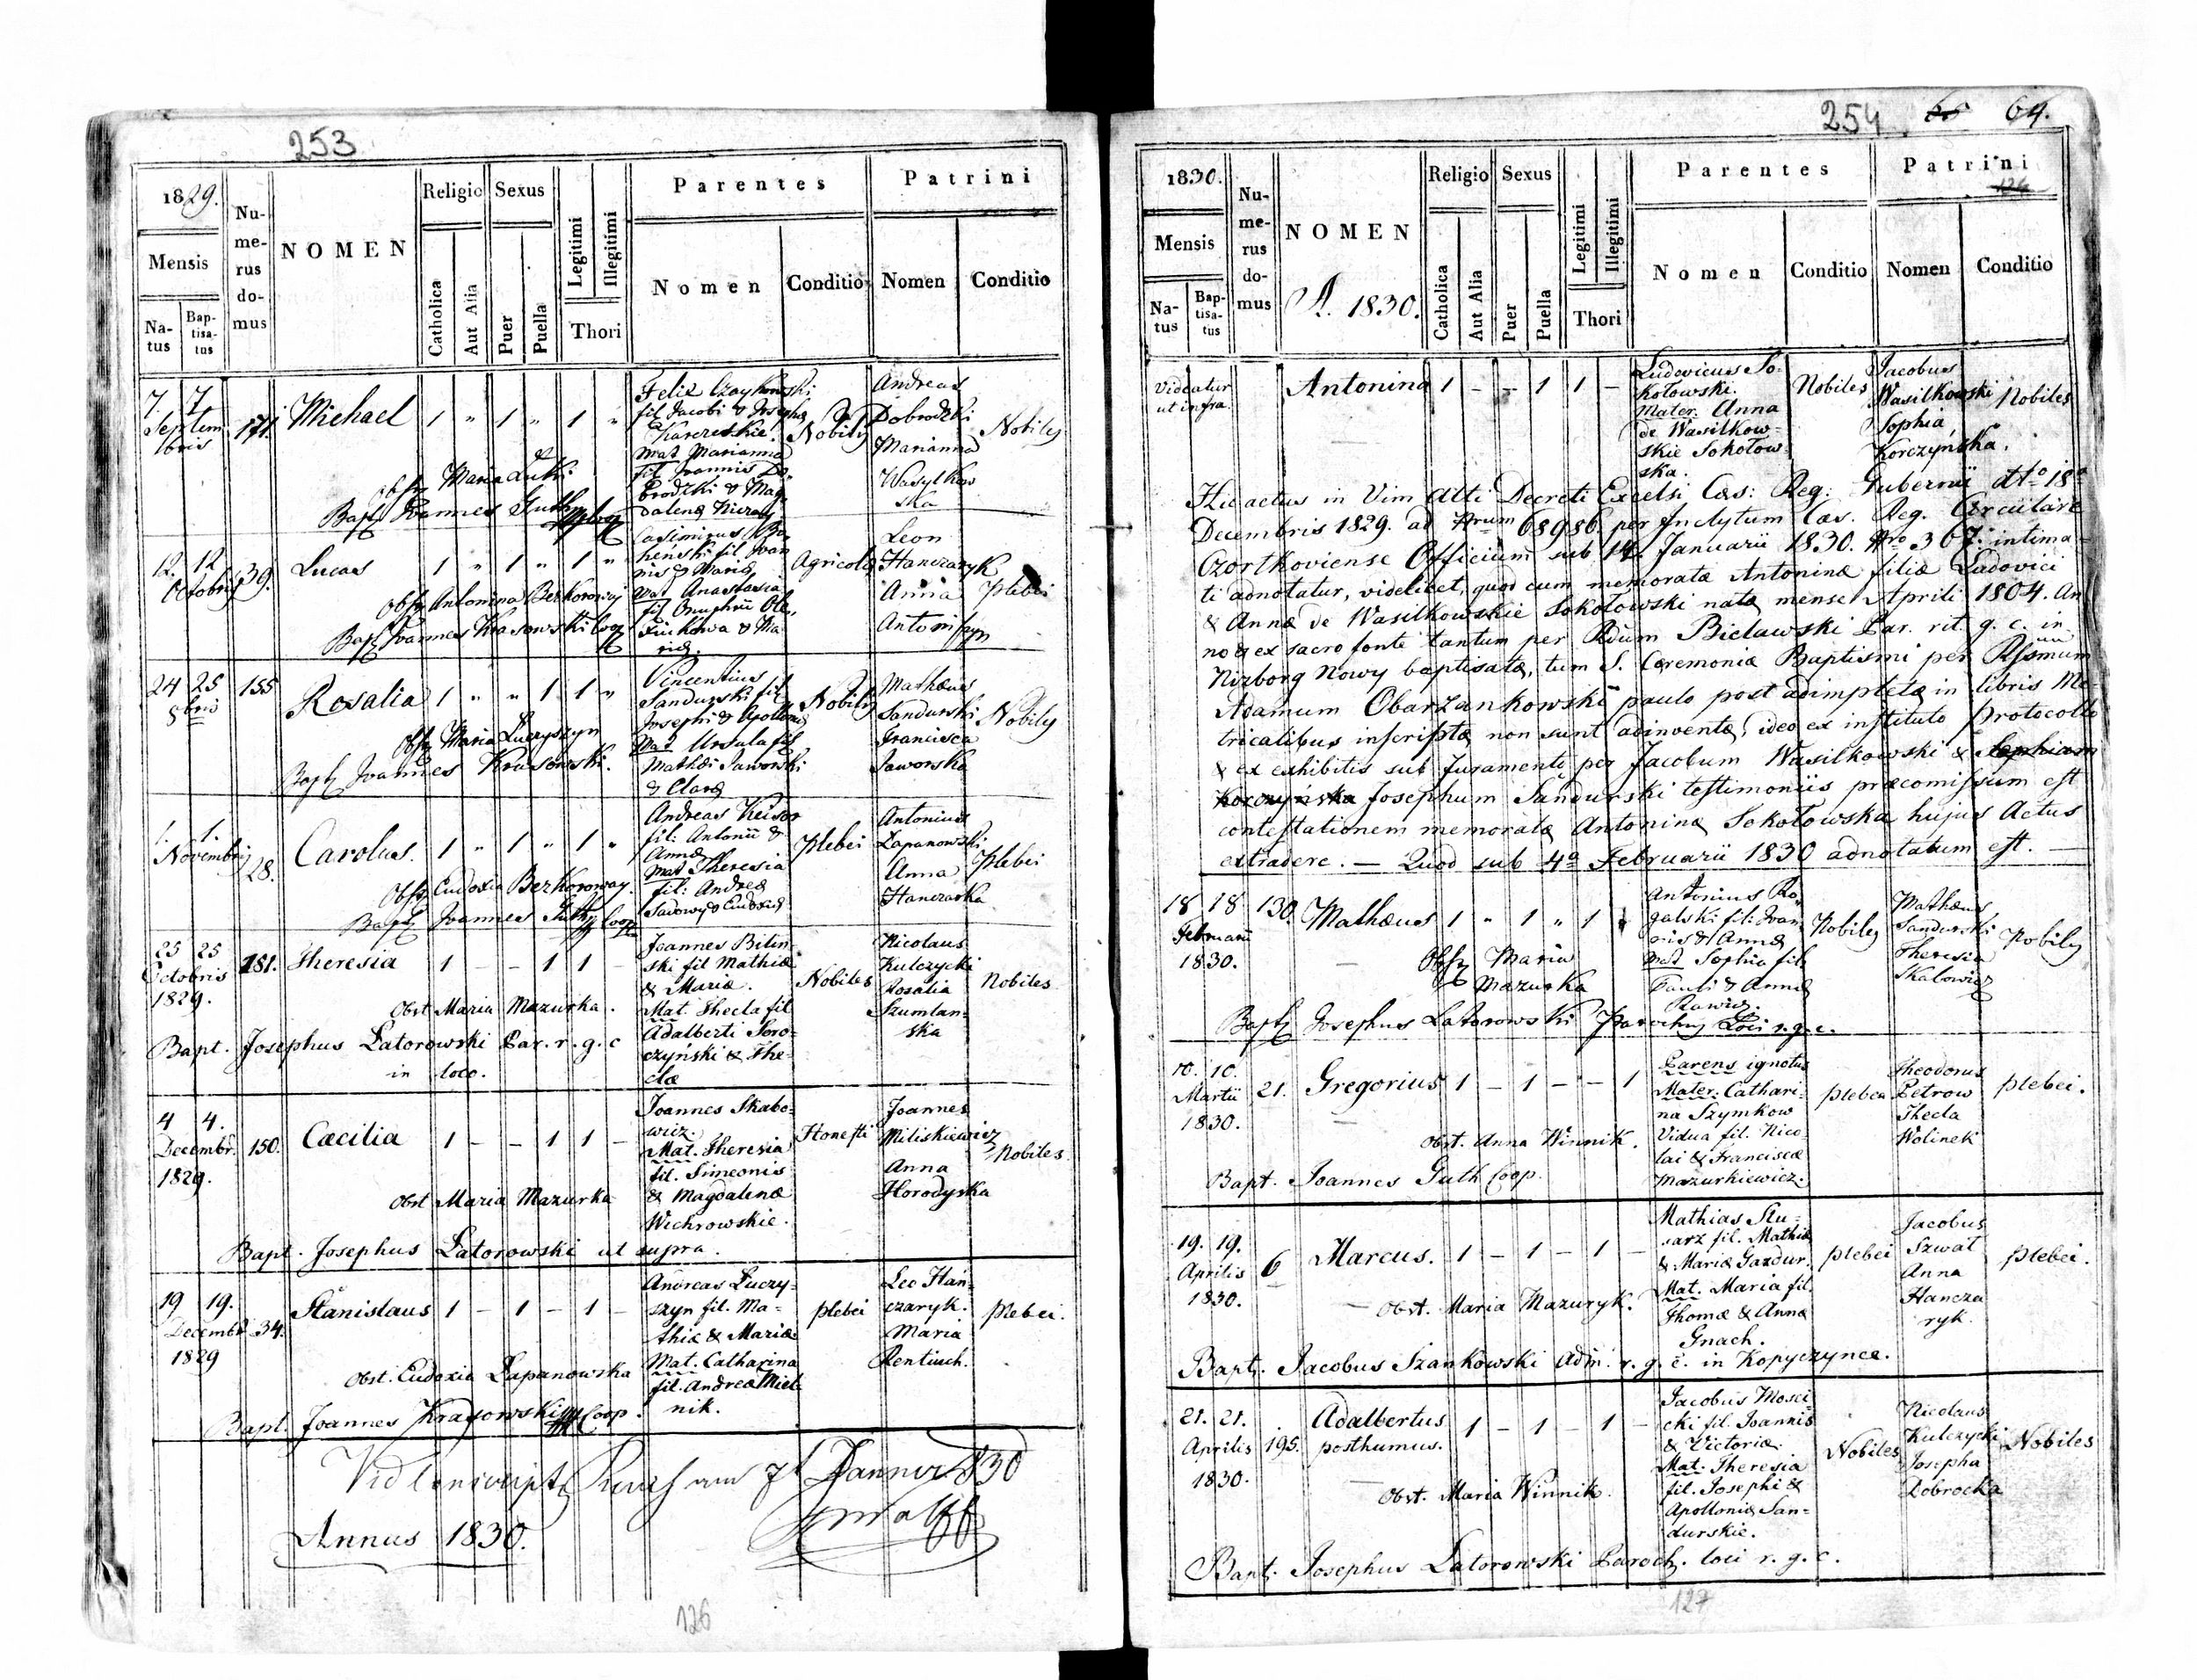 253
1829.
Mensis
Natus
Baptisatus
Numerus domus
NOMEN
Religio
Catholica
Aut Alia
Sexus
Puer
Puella
Legitimi
Illegitimi
Thori
Parentes
Nomen
Conditio
Patrini
Nomen
Conditio
7. 7.
Septembris
171. Michael 1 " 1 " 1 "
fil Jacobi & Josepha
Nobiles
Andreas
Dobrodzki
Marianna
Wasylkowska
Nobiles
Mat Marianna
fil Joannis Do
brodzki & Mag
dalena
Obst Maria
Bapt Joannes Guth Coop
12. 12
Octobris
39. Lucas 1 " 1 " 1 "
Casimirus
fil Joan
nis & Maria
Mat Anastasia
fil Onuphrii
& Ma
ria.
Agricola
Leon
Hanczaryk
Anna
Plebei
Obst Antonina Bezkorowaj
Bapt Joannes Krasowski Coop
24 25
8bris
155 Rosalia 1 " " 1 1 "
Vincentius
Sandurski fil
Josephi & Apollonia
Mat Ursula fil
Mathæi Jaworski
& Clara
Nobiles
Mathæus
Sandurski
Francisca
Jaworska
Nobiles
Obst Maria Luczyszyn
Bapt Joannes Krasowski.
1. 1.
Novembris
28. Carolus. 1 " 1 " 1 "
Andreas
fil: Antonii &
Anna
Mat Theresia
fil: Andrea
Plebei
Antonius
Lapanowski
Anna
Hanczarka
Plebei
Obst Eudoxia Bezkoroway.
Bapt Joannes Guth Coop
25 25
Octobris
1829.
181. Theresia 1 – – 1 1
Joannes Bilin
ski fil Mathiæ
& Mariæ.
Mat. Thecla fil
Adalberti Soro=
czyński & The=
clæ
Nobiles
Nicolaus
Kulczycki
Rosalia
Szumlan=
ska
Nobiles
Obst Maria Mazurka.
Bapt. Josephus Latorowski Par. r. g. c
in loco.
4 4.
Decembr.
1829.
150. Cæcilia 1 – – 1 1 –
Joannes Skabo=
wicz.
Mat. Theresia
fil. Simeonis
& Magdalenæ
Wichrowskie.
Honesti
Joannes
Miliskiewicz
Anna
Horodyska
Nobiles
Obst Maria Mazurka
Bapt. Josephus Latorowski ut supra.
19 19.
Decembr
1829
34. Stanislaus 1 – 1 – 1 –
Andreas Luczy=
szyn fil. Ma=
thiæ & Mariæ
Mat. Catharina
fil. Andreæ Miel
nik.
plebei
Leo Han=
czaryk.
Maria
plebei.
Obst. Eudoxia Lapanowska
Bapt. Joannes Krasowski Coop.
Vid
7t Januer 830
Annus 1830.
126
254 65 64.
1830.
Mensis
Natus
Baptisatus
Numerus domus
NOMEN
A. 1830.
Religio
Catholica
Aut Alia
Sexus
Puer
Puella
Legitimi
Illegitimi
Thori
Parentes
Nomen
Conditio
Patrini
126
Nomen
Conditio
Videatur
ut infra.
Antonina 1 – – 1 1 –
Ludovicus So=
kołowski.
Mater. Anna
de Wasilkow=
skie Sokołow
ska.
Nobiles
Jacobus
Wasilkowski
Sophia
Korczyńska.
Nobiles
Hic actus in Vim Atti Decreti Excelsi Cæs: Reg: Gubernii dto 18a
Decembris 1829. ad Nrum 68986 per Inclytum Cæs. Reg. Circulare
Czortkoviense Officium sub 14. Januarii 1830. Nro 367. intima=
ti adnotatur, videlicet, quod cum memorata Antonina filia Ludovici
& Annæ de Wasilkowskie Sokołowski nata mense Aprili 1804. An
no & ex sacro fonte tantum per Rdum Bielawski Par. rit. g. c. in
Nizborg Nowy baptisata, tum S. Ceremonia Baptismi per
Adamum Obarzankowski paulo post adimpleta in libris Me=
tricalibus inscripta non sunt adinventa, ideo ex instituto Protocollo
& ex exhibitis sub Juramento per Jacobum Wasilkowski & Sophiam
Korczyńska Josephum Sandurski testimoniis præcomissum est
contestationem memorata Antonina Sokołowska hujus Actus
extradere. — Quod sub 4a Februarii 1830 adnotatum est. —
18 18
Februarii
1830.
130. Mathæus 1 " 1 " 1
Antonius Ro
galski fil: Joan
nis & Anna
Mat Sophia fil:
Pauli & Anna
Rawicz.
Nobiles
Mathæus
Sandurski
Theresia
Skalowicz
Nobiles
Obst Maria
Mazurka
Bapt Josephus Latorowski Parochus Loci r. g. c.
10. 10.
Martii
1830.
21. Gregorius 1 – 1 – – 1
Parens ignotus
Mater. Cathari=
na Szymkow
Vidua fil. Nico=
lai & Franciscæ
Mazurkiewicz.
plebea
Theodorus
Petrow
Thecla
Wolinek
plebei.
Obst. Anna Winnik.
Bapt. Joannes Guth Coop.
19. 19.
Aprilis
1830.
6 Marcus. 1 – 1 – 1 –
Mathias Slu=
sarz fil. Mathiæ
& Mariæ Gazdur.
Mat. Maria fil.
Thomæ & Annæ
Gnach.
plebei
Jacobus
Szwał
Anna
Hancza
ryk.
plebei.
Obst. Maria Mazuryk.
Bapt. Jacobus Szankowski Adm. r. g. c. in Kopyczynce.
21. 21.
Aprilis
1830.
195. Adalbertus
posthumus.
1 – 1 – 1 –
Jacobus Mosci
cki fil. Joannis
& Victoriæ.
Mat. Theresia
fil. Josephi &
Apolloniæ San=
durskie.
Nobiles
Nicolaus
Kulczycki
Josepha
Dobrocka
Nobiles
Obst. Maria Winnik.
Bapt. Josephus Latorowski Paroch. loci r. g. c.
127